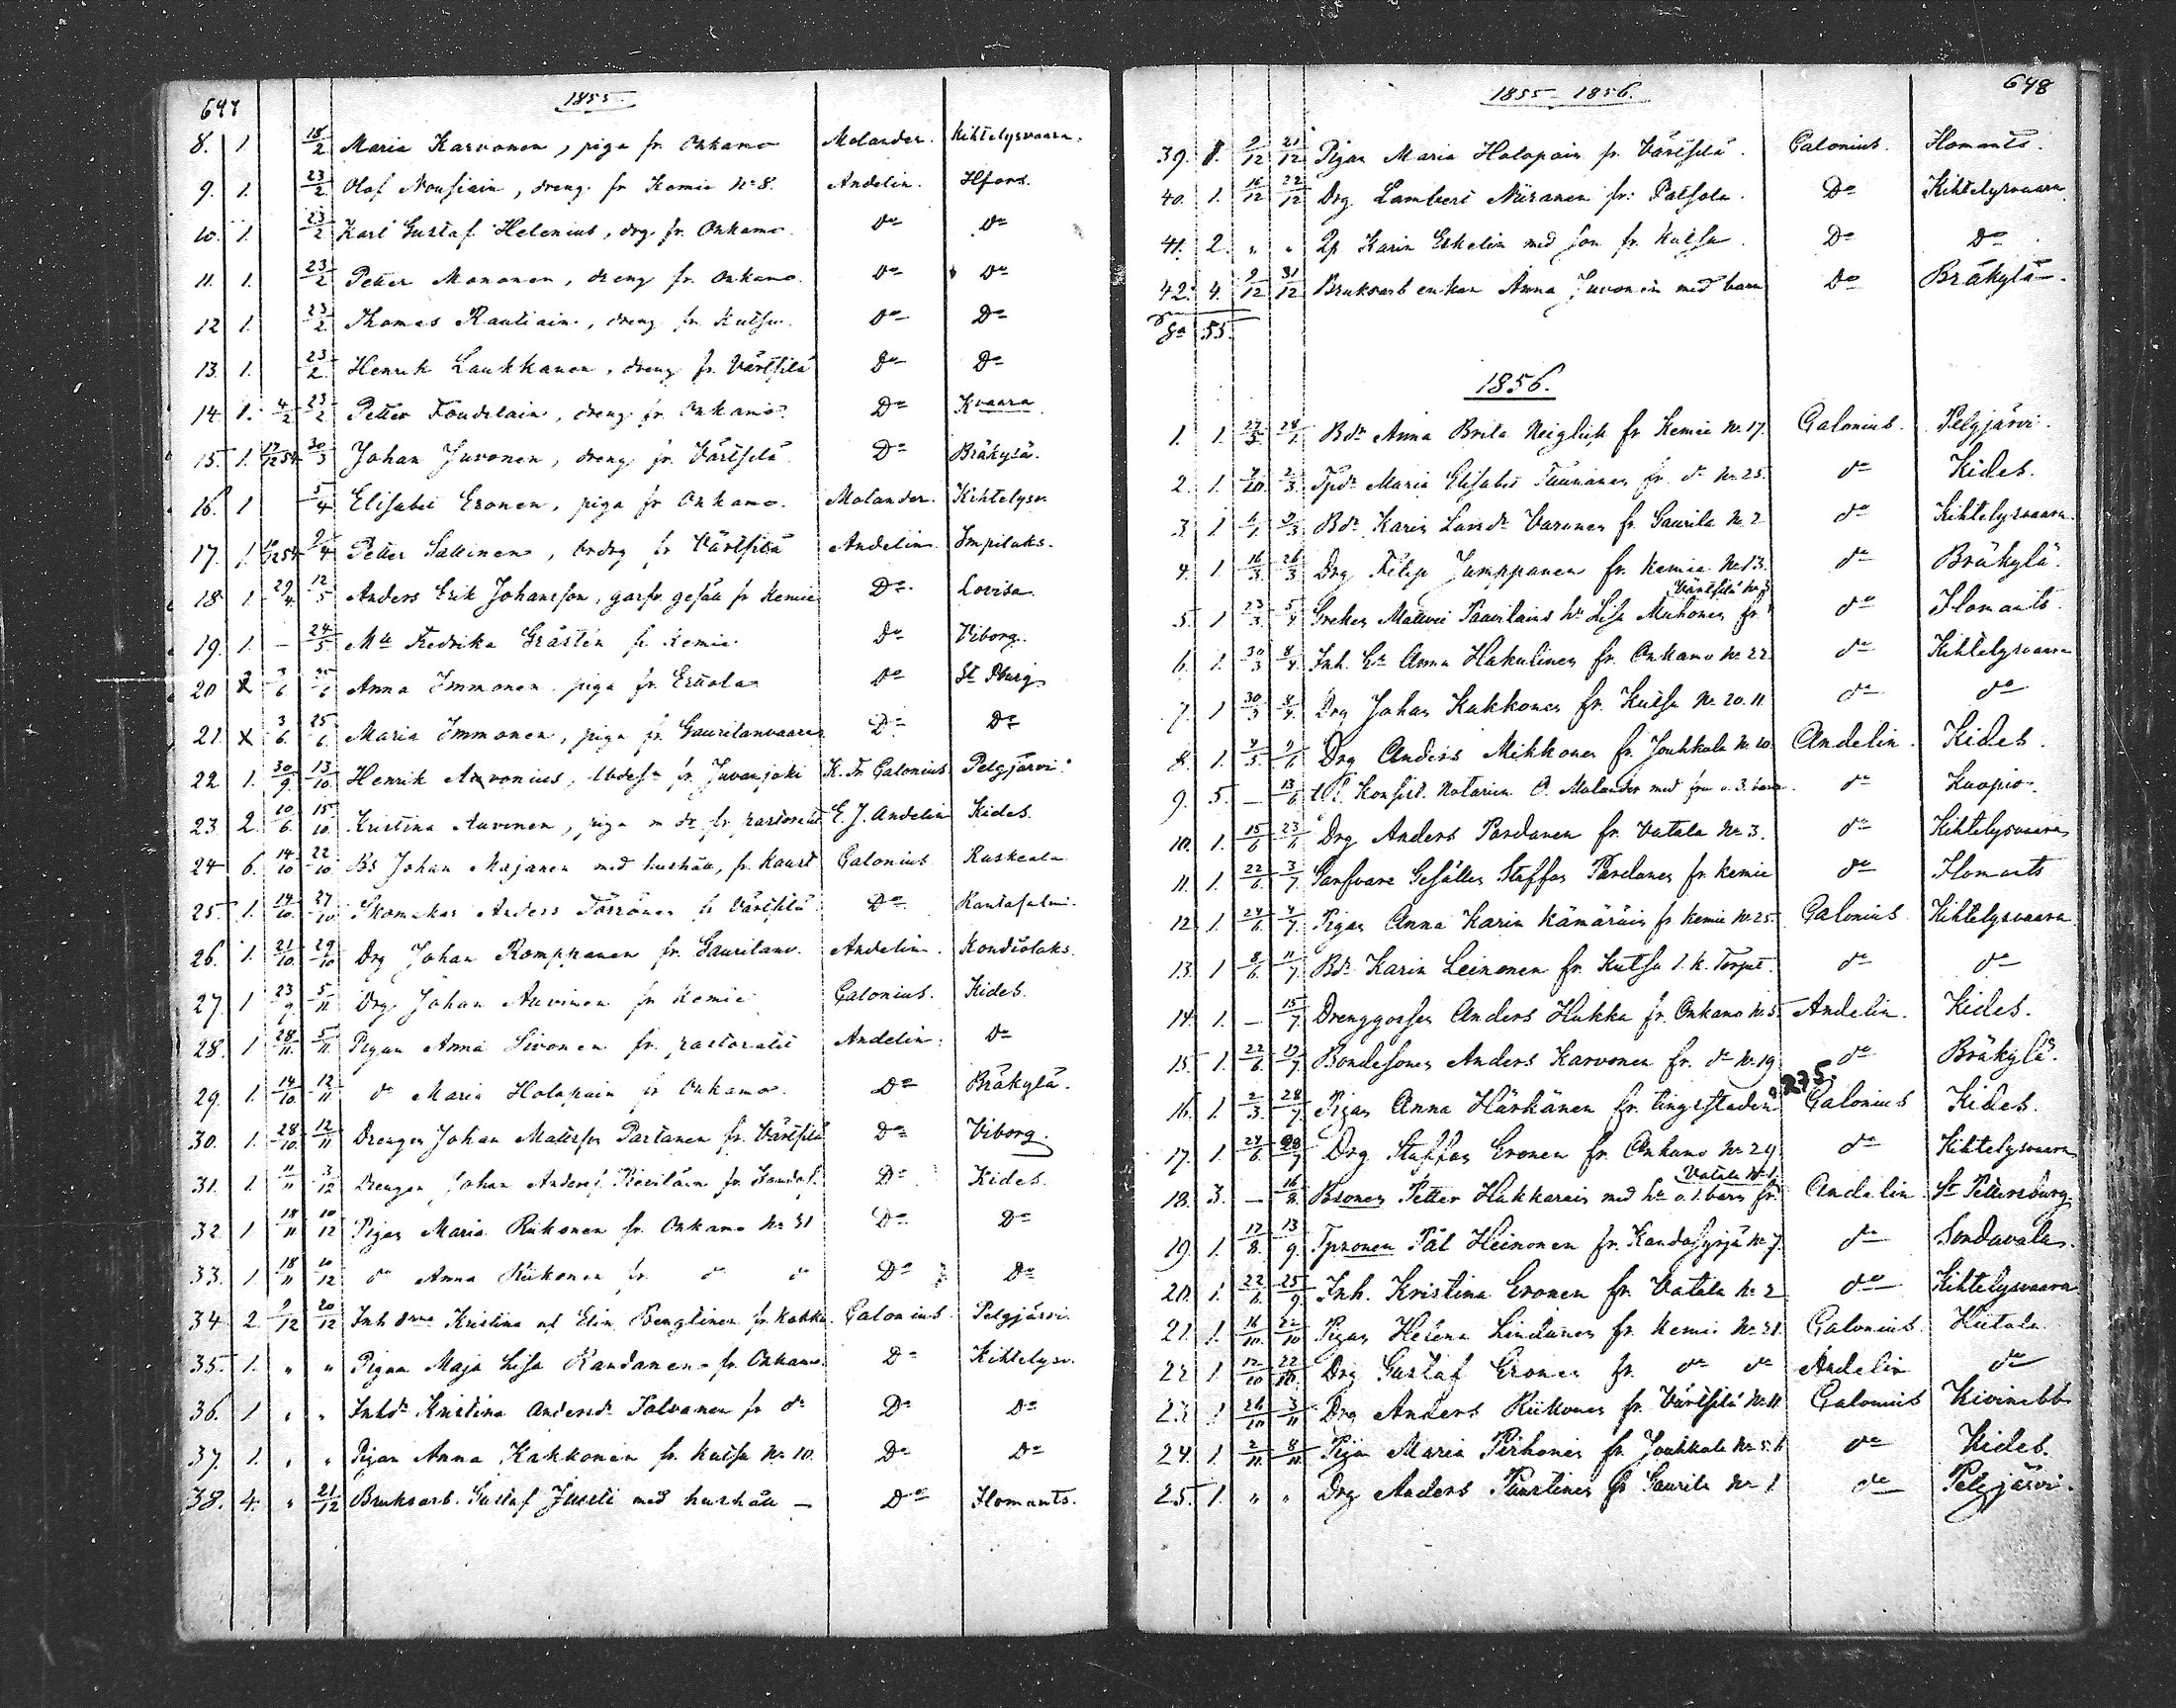 647
1855.
8. 1 18/2 Maria Karvonen, piga fr. Onkamo Molander. Kihtelysvaara.
9. 1. 23/2 Olof Nousiain, dreng fr Kemie No 8. Andelin. Hfors.
10. 1. 23/2 Karl Gustaf Helenius, drg. fr. Onkamo. Do Do
11. 1. 23/2 Petter Mononen, dreng fr. Onkamo. Do Do
12 1. 23/2 Thomas Rautiain, dreng fr. Kutsu. Do Do
13. 1. 23/2 Henrik Laukkanen, dreng fr. Värtsilä Do Do
14. 1. 4/2 23/2 Petter dreng fr. Onkamo. Do Kvaara
15. 1. 17/12 54 30/3 Johan Juvonen, dreng fr. Värtsilä Do Bräkylä.
16. 1 5/4 Elisabet Eronen, piga fr Onkamo. Molander. Kihtelysv.
17. 1. Petter Sallinen, fr Värtsilä Andelin. Impilaks.
18 1. 29/4 12/5 Anders Erik Johansson, garfv. gesäll fr Kemie Do Lovisa
19. 1. – 24/5 Mll Fredrika Gråstén fr Kemie Do Viborg.
20 2 3/6 25/6 Anna Immonen piga fr. Do St Pburg
21. x 3/6. 25/6. Maria Immonen, piga fr. Gaurilanvaara Do Do
22 1. 30/9. 13/10. Henrik fr. Juvanjoki K. Fr. Calonius Pelgjärvi.
23. 2. 10/6. 15/10. Kristina Auvinen, piga fr pastoratet E. J. Andelin Kides.
24 6. 14/10 22/10 Bs Johan Majanen med hushåll, fr. Calonius Ruskeala
25. 1. 14/10. 27/10 Skomakar Anders Törrönen fr Värtsilä Do Rantasalmi.
26. 1. 21/10. 29/10 Drg Johan Romppanen fr. Gaurilanv. Andelin. Kondiolaks.
27. 1 23/9 5/11 Drg. Johan Auvinen fr Kemie Calonius. Kides.
28. 1 28/11. 5/11. Pigan Anna Sivonen fr. pastoratet Andelin. Do
29. 1. 14/10 12/11 do Maria Holopain fr Onkamo. Do Bräkylä.
30. 1. 28/10. 12/11 Drengen Johan Matsson Partanen fr. Värtsilä Do Viborg.
31. 1. 11/11 3/12 Drengen Johan Anders. fr. Do Kides.
32. 1 18/11 10/12 Pigan Maria Riikonen fr. Onkamo No 31 Do Do
33. 1. 18/11 10/12 do Anna Riikonen fr. do do Do Do
34. 2. 9/12 20/12 Kristina och Elin Bengtinen fr. Calonius. Pelgjärvi.
35. 1. " " Pigan Maja Lisa Randanen fr. Onkamo. Do Kihtelysv.
36. 1 " " Inhdr Kristina Andersdr Palvanen fr do Do Do
37. 1. " " Pigan Anna Kakkonen fr. Kutsu No 10. Do Do
38. 4. " 21/12 Bruksarb. Gustaf Juseli med hushåll – Do Ilomants.
648
1855–1856.
39. 1. 9/12 21/12 Pigan Maria Holopain fr. Värtsilä. Calonius. Ilomants.
40. 1. 16/12 22/12 Drg Lambert Niiranen fr. Patsola. Do Kihtelysvaara
41. 2. " " Karin Eskelin med son fr. Kutsu. Do Do
42. 4. 9/12 31/12 Bruksarb. enkan Anna Juvonen med barn Do Bräkylä.
Sa 55.
1856.
1. 1. Bdr Anna Brita Neiglick fr Kemie No 17. Calonius. Pelgjärvi.
2. 1. Tpdr Maria Elisabet fr. do No 25. do Kides.
3. 1 Bdr Karin Larsdr Varonen fr. Gaurila No 2 do Kihtelysvaara
4. 1. 16/3. 26/3 Drg Filip Jumppanen fr. Kemie No 13. do Bräkylä.
5. 1 23/3. 5/4 Greken Matwei Paavilains hu Lisa Muhonen fr Värtsilä do Ilomants.
6. 1. 30/3 8/4 Inh. Anna Hakulinen fr. Onkamo No 22 do Kihtelysvaara
7. 1 30/3 8/4. Drg Johan Kakkonen fr. Kutsu No 20. 11 do do
8. 1. Drg Anders Mikkonen fr. Jouhkola No 10 Andelin. Kides.
9. 5. – 13/6 Konsist. Notarien O. Molander med fru o. 3. barn do Kuopio.
10. 1. 15/6 23/6 Drg Anders Pardanen fr. Vatala No 3. do Kihtelysvaara
11. 1. 22/6. 3/7. Garfvare Gesällen Staffan Pardanen fr. Kemie do Ilomants
12 1. 24/6. 4/7. Pigan Anna Karin Kämäräin fr. Kemie No 25. Calonius. Kihtelysvaara
13. 1 8/6. 11/7. Bdr Karin Leinonen fr. Kutsu l. k. Torpet. do do
14. 1. – 15/7. Drenggossen Anders Hukka fr. Onkamo No 5. Andelin. Kides.
15. 1. 22/6. 19/7 Bondesonen Anders Karvonen fr. do No 19 do Bräkylä.
16. 1. 2/3. 28/7 Pigan Anna Härkänen fr. tingsstaden 275. Calonius Kides.
17. 1. 24/6. 28/7 Drg Staffan Eronen fr. Onkamo No 29 do Kihtelysvaara
18. 3. – 16/8. Bsonen Petter Hukkarain med hu o. 1. barn fr. Vatala No 1. Andelin St Petersburg
19. 1. 17/8. 13/9. Tpsonen Pål Heinonen fr. Kandasyrjä No 7. do Sordavala.
20. 1. 22/6. 25/9 Inh. Kristina Eronen fr. Vatala No 2 do Kihtelysvaara
21. 1. 16/10. 22/10 Pigan Helena Lindanen fr. Kemie No 31. Calonius. Hiitola.
22 1. 12/10 22/10. Drg Gustaf Eronen fr. do do Andelin do
23. 1 26/10 3/11 Drg Anders Riikonen fr. Värtsilä No 11. Calonius Kivinebb
24. 1. 2/11 8/11 Pigan Maria Pirhonen fr. Jouhkola No 5. do Kides.
25. 1. " " Drg Anders fr Gaurila No 1 do Pelgjärvi.